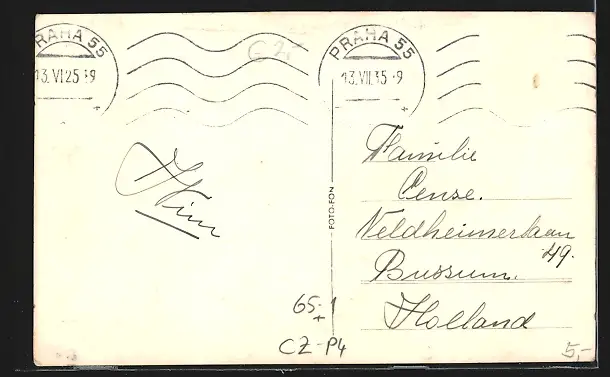 PRAHA 55
13.VI 25 -9
€ 2,-
PRAHA 55
13.VII.35 -9
Wim
FOTO-FON
Familie
Cense.
Veldheimerlaan
49.
Bussum.
Holland
65-1
+
CZ-P4
5,-